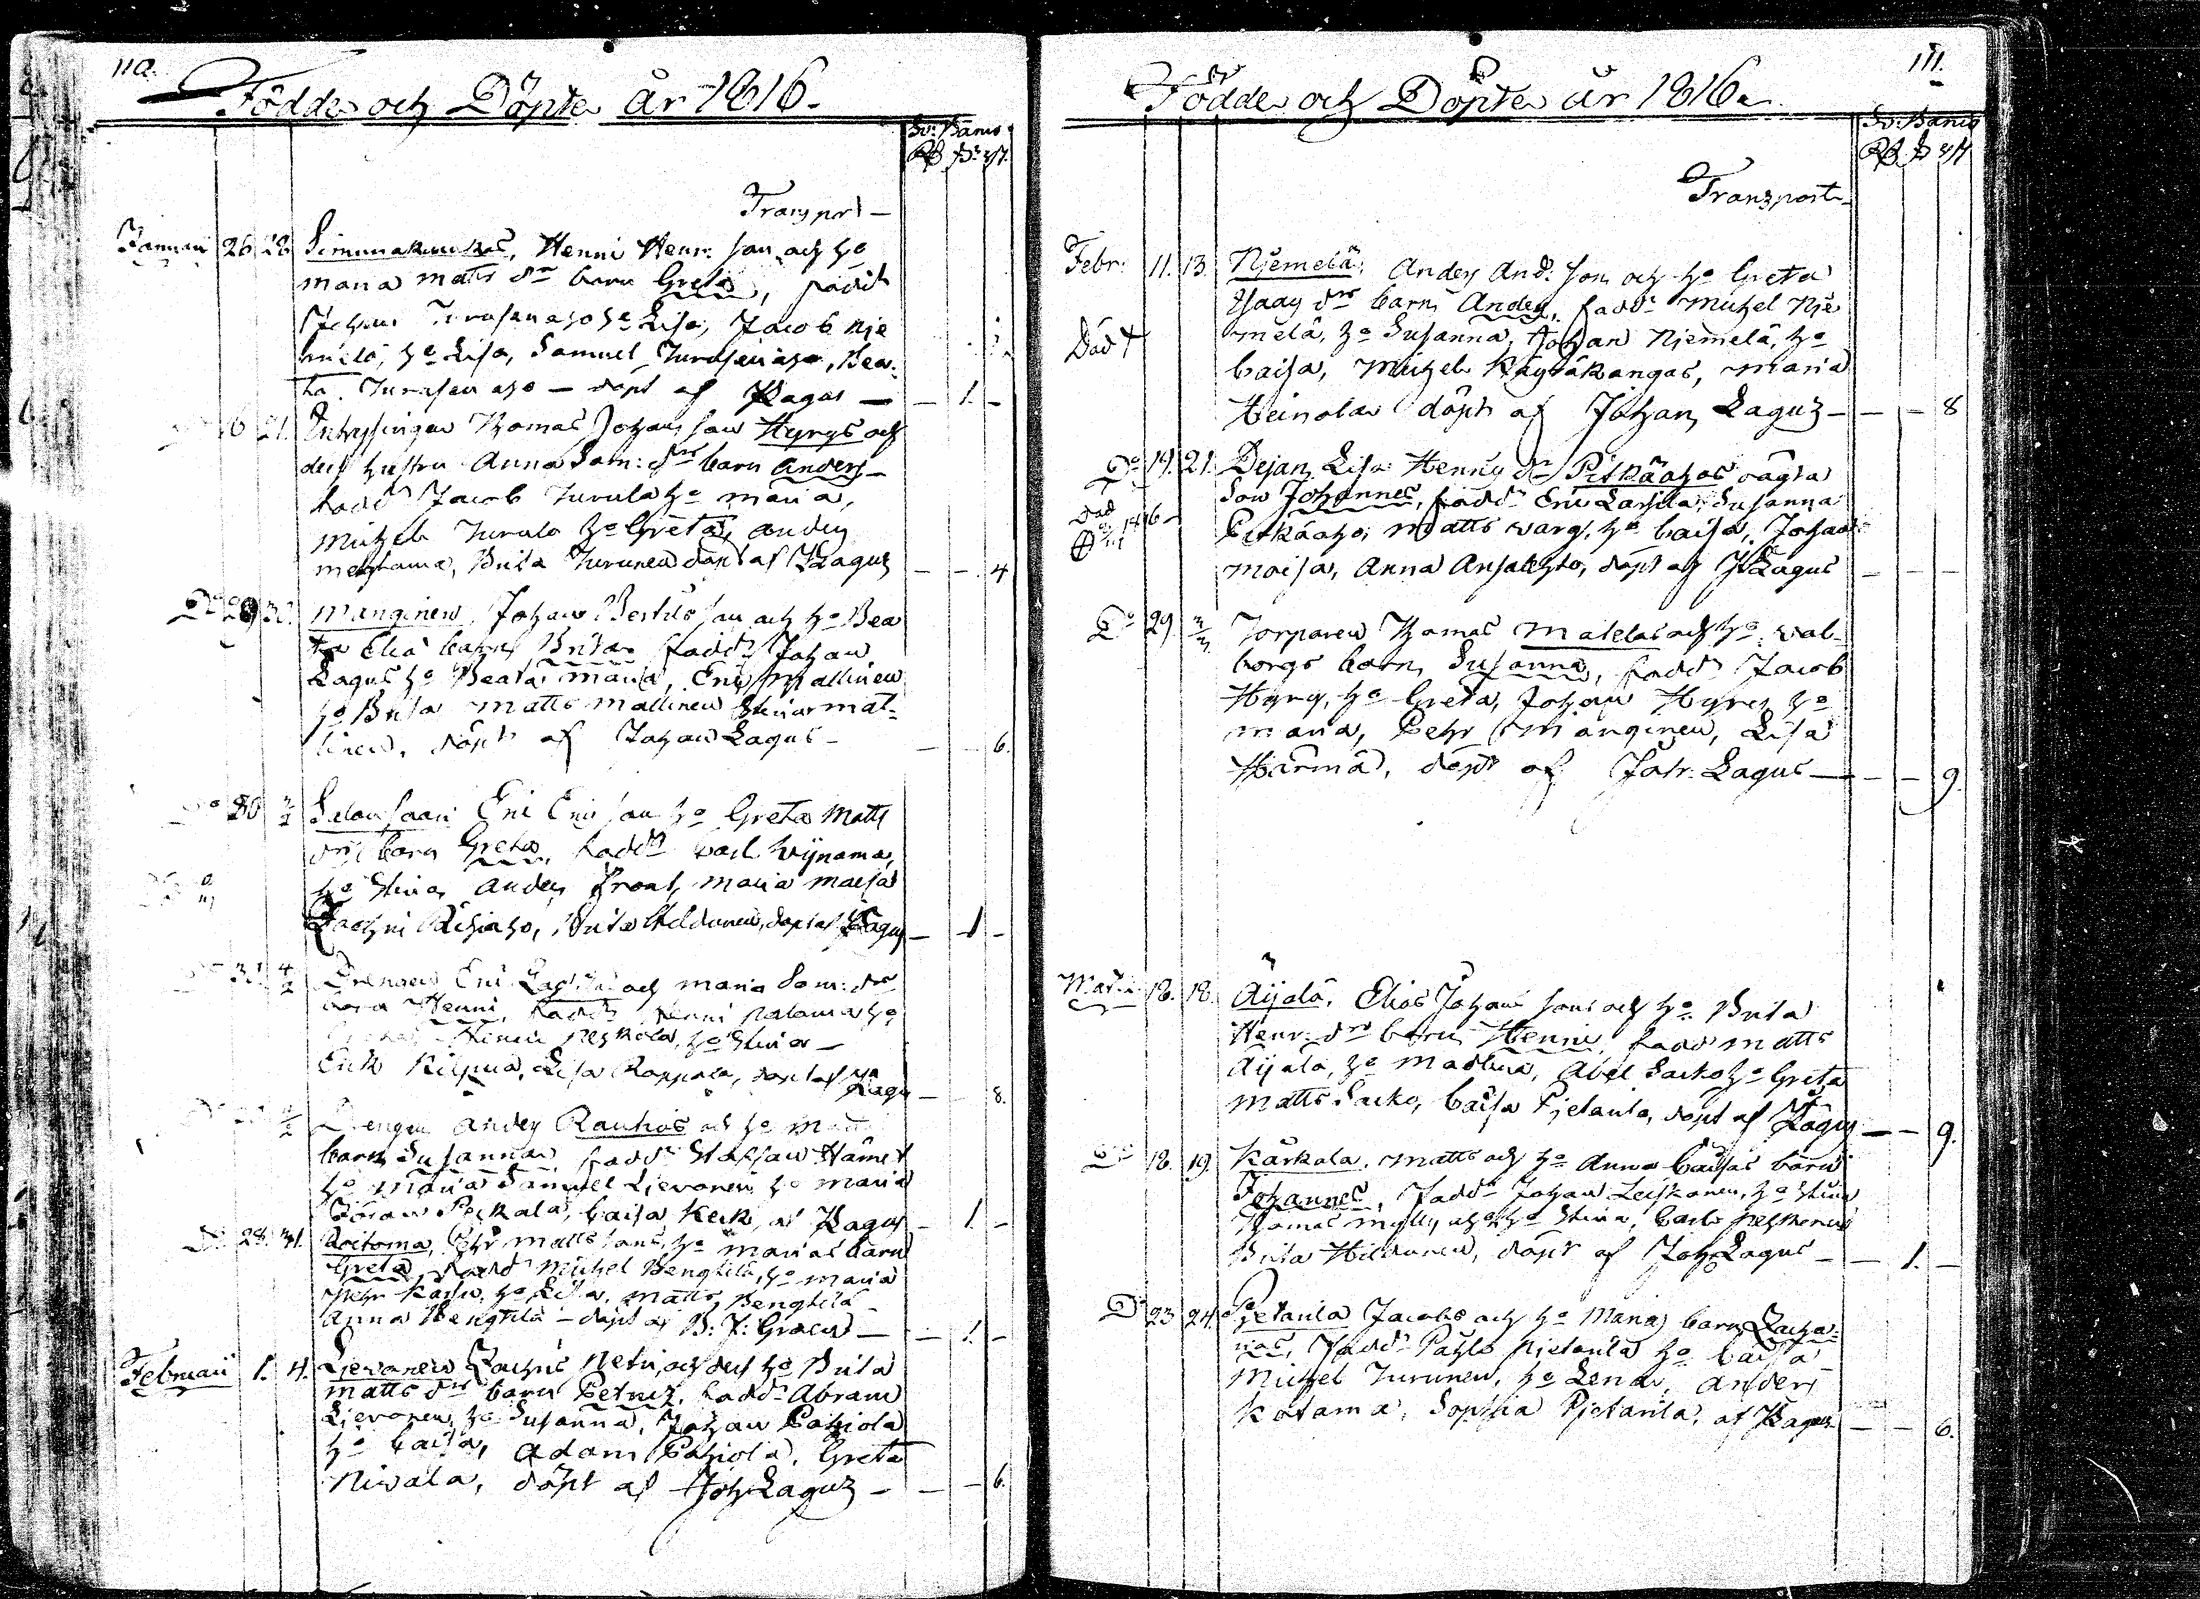 110.
Födde och Döpte år 1816.
Sv: Banco
Rd s: rst.
Transport —
Januari 26 28 Simunakuukas, Henric Henr: son och ho
maria matts dr barn Greta, fadd
Johan Turusenaho ho Lisa, Jacob Nie
ho Lisa, Samuel Turusenaho, Bea-
ta Turusenaho — döpt af Lagus — — 1. —
16 21. Inhysingen Thomas Johans son Hyrys och
dess hustru Anna Sam: dr barn Anders
fadd Jacob Turula ho maria,
Michel Turula ho Greta, Anders
Brita Turunen döpt af Lagus — — 4
Do 29 30. Manginen, Johan Bertils son och ho Bea
ta Elia barn Brita fadd Johan
Lagus ho Beata maria, Eric Mallinen
ho Brita matts mallinen Stina mal-
linen, döpt af Johan Lagus — — — 6.
Do 30 2/2 Salonsaari Eric Eric son ho Greta Matts
dr barn Greta, fadd Carl Wijnama,
ho Stina, Anders Frost, maria maija
Zachris Ahdunen, döpt af Lagus — 1 —
31 4/2 Drengen Eric och maria Sam: dr
barn Henric, fadd Henric Palama ho
Henric Peskola, ho Stina —
Erik Kilpua, Lisa Rappala, döpt af Lagus — 8.
2/2 Drengen Anders Rauhios och ho
barn Susanna fadd Staffan Hämet
ho maria Samuel Lievonen ho maria
Johan Peckala, Caisa Keck, af Lagus — 1. —
Do 28. 31. Aoitoma, Pehr matts sons, ho marias barn
Greta, fadd Michel Bengtilä, ho maria
Pehr ho Lisa, matts Bengtilä
Anna Bengtilä — döpt af — — 1. —
Februarii 1. 4. Lievonen Zachris Petri, och dess ho Brita
matts dr barn Petrus, fadd Abram
Lievonen, ho Susanna, Johan Pahjola
ho Caisa, Adam Pahjola, Greta
Niwala, döpt af Joh Lagus — — — 6.
111.
Födde och Döpte år 1816.
Sv: Banco
Rd s rst
Transport
Febr: 11. 13. Njemelä, Anders And: son och ho Greta
Isaacs dr barn Anders, fadd Michel Nje
Död † melä, ho Susanna, Johan Njemelä, ho
Caisa, Michel Käyräkangas, maria
Heinola döpt af Johan Lagus — — — 8
Do 19. 21. Dejan Lisa Henrics dr Pitkäahos oägta
Död son Johannes, fadd Eric Larsila, Susanna
Pitkäaho, matts warg, ho Caisa, Johan
maisa, Anna Ansalehto, döpt af J Lagus — — —
Do 29. 3/3 Torparen Thomas Matelas och ho Wal-
borgs barn Susanna, fadd Jacob
Hyry, ho Greta, Johan Hyry, ho
maria, Pehr Manginen, Lisa
Härmä, döpt af Joh: Lagus — — — 9.
Martii 18. 18. Äijälä, Elias Johans sons och ho Brita
Henr: dr barn Henric, fadd matts
Äijälä, ho madlena, Abel Sarko ho Greta
matts Sarko, Caisa Pjetarila, döpt af Lagus — — 9.
Do 18. 19. Karkola, matts och ho Anna Caisas barn
Johannes, fadd Johan Leiskonen, ho Stina
Thomas myllyaho ho Stina, Carl Peskonen
Brita Hildunen, döpt af Joh Lagus — — 1. —
Do 23 24. Pjetarila Jacobs och ho Marias barn Zacha-
rias, fadd Pahlo Pjetarila ho Caisa
Michel Turunen, ho Lena, Anders
Katama, Sophia Pjetarila, af Lagus — — 6.